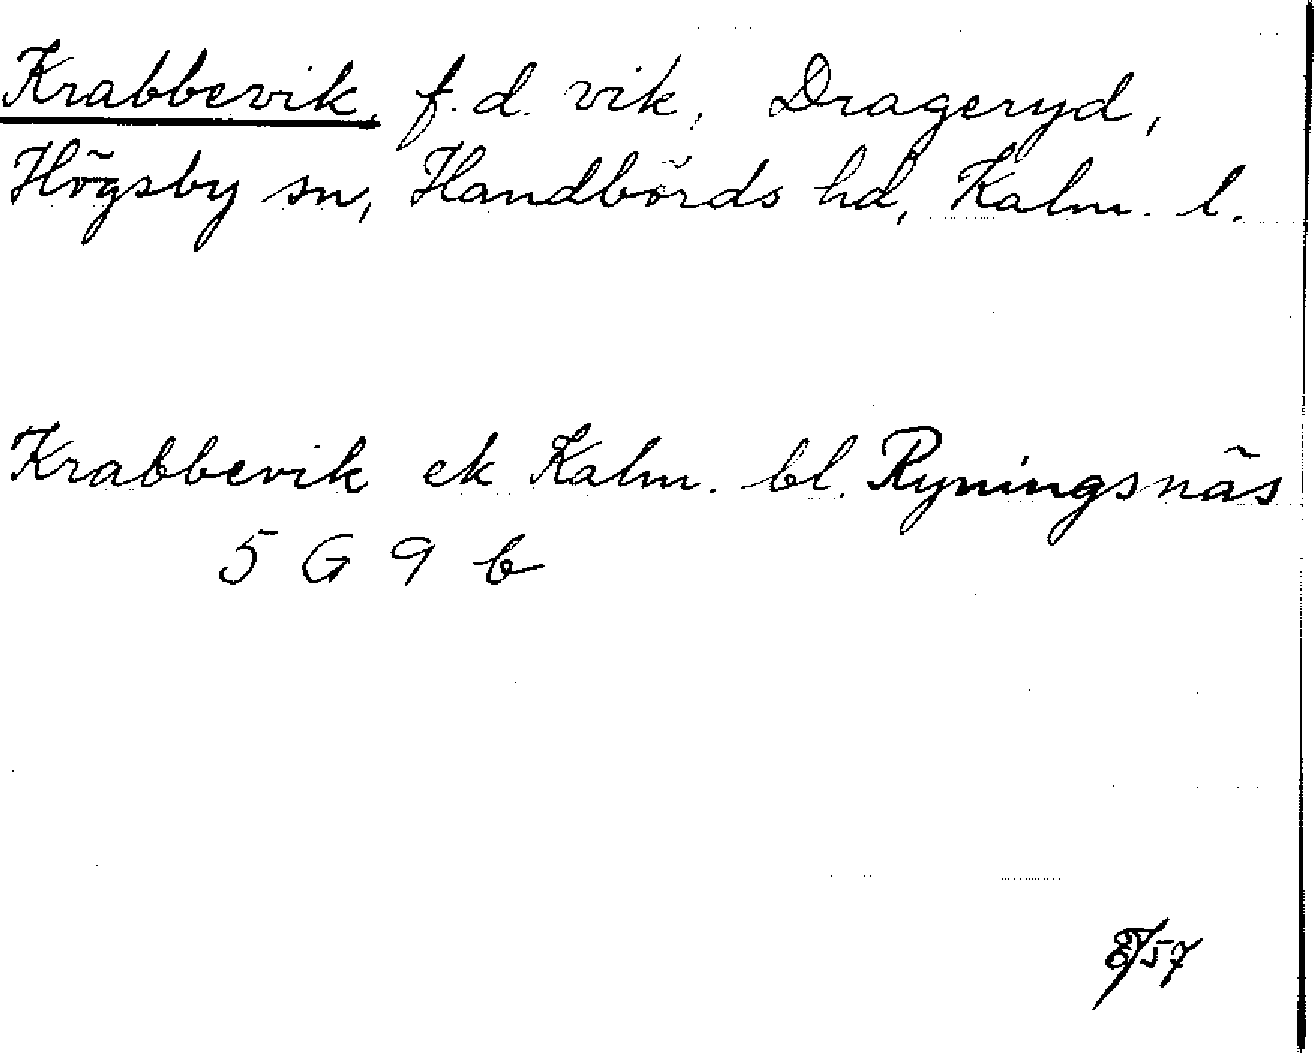 Krabbevik, f.d. vik, Drageryd,
Högsby sn, Handbörds hd, Kalm. l.
Krabbevik ek Kalm. bl. Ryningsnäs
5 G 9 b
/57